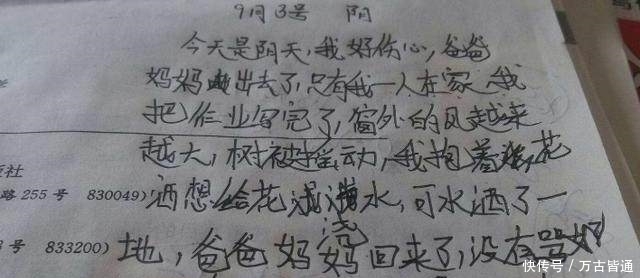 9月3号 阴
今天是阴天,我好伤心,爸爸
妈妈出去了,只有我一人在家,我
把作业写完了,窗外的风越来
越大,树被摇动,我抱着花
洒想给花浇水,可水洒了一
地,爸爸妈妈回来了,没有骂我
版社
路 255 号 830049)
3 号 833200)
快传号 / 万古皆通